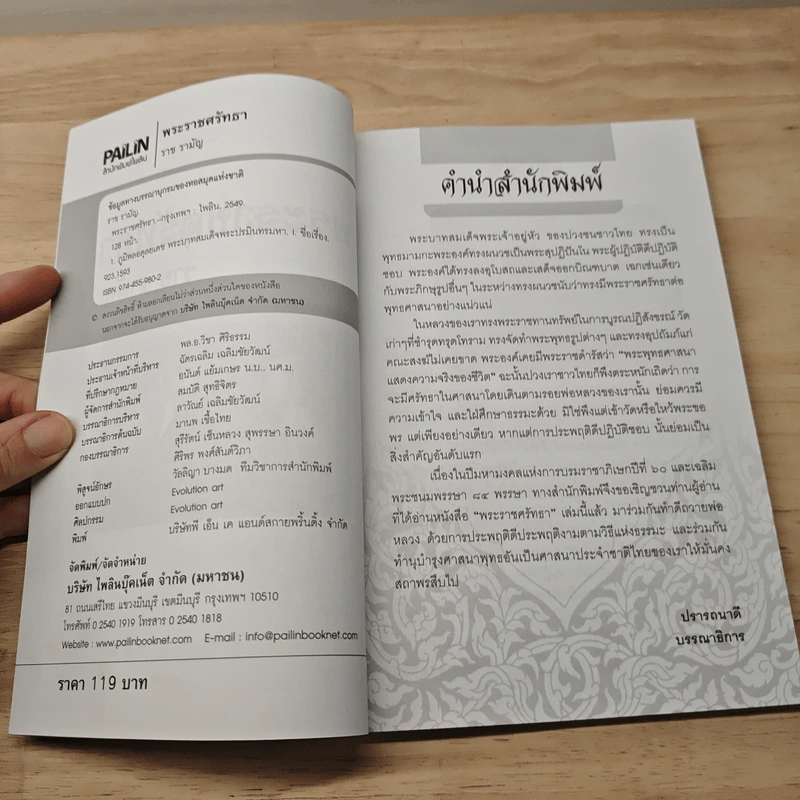 PAiLiN
สำนักพิมพ์ไพลิน
พระราชศรัทธา
ราช รามัญ
ข้อมูลทางบรรณานุกรมของหอสมุดแห่งชาติ
ราช รามัญ.
พระราชศรัทธา.--กรุงเทพฯ : ไพลิน, 2549.
128 หน้า.
1. ภูมิพลอดุลยเดช พระบาทสมเด็จพระปรมินทรมหา. I. ชื่อเรื่อง.
923.1593
ISBN 974-455-980-2
© สงวนลิขสิทธิ์ ห้ามลอกเลียนไม่ว่าส่วนหนึ่งส่วนใดของหนังสือ
นอกจากจะได้รับอนุญาตจาก บริษัท ไพลินบุ๊คเน็ต จำกัด (มหาชน)
ประธานกรรมการ พล.อ.วิชา ศิริธรรม
ประธานเจ้าหน้าที่บริหาร ฉัตรเฉลิม เฉลิมชัยวัฒน์
ที่ปรึกษากฎหมาย อนันต์ แย้มเกษร น.บ., นศ.ม.
ผู้จัดการสำนักพิมพ์ สมบัติ สุทธิจิตร
บรรณาธิการบริหาร ลาวัณย์ เฉลิมชัยวัฒน์
บรรณาธิการต้นฉบับ มานพ เชื้อไทย
กองบรรณาธิการ สุรีรัตน์ เซ็นหลวง สุพรรษา อินวงค์
ศิริพร พงศ์สันต์วิภา
พิสูจน์อักษร วัลลิญา บางมต ทีมวิชาการสำนักพิมพ์
ออกแบบปก Evolution art
ศิลปกรรม Evolution art
พิมพ์ บริษัทพี เอ็น เค แอนด์สกายพริ้นติ้ง จำกัด
จัดพิมพ์/จัดจำหน่าย
บริษัท ไพลินบุ๊คเน็ต จำกัด (มหาชน)
81 ถนนเสรีไทย แขวงมีนบุรี เขตมีนบุรี กรุงเทพฯ 10510
โทรศัพท์ 0 2540 1919 โทรสาร 0 2540 1818
Website : www.pailinbooknet.com E-mail : info@pailinbooknet.com
ราคา 119 บาท
คำนำสำนักพิมพ์
พระบาทสมเด็จพระเจ้าอยู่หัว ของปวงชนชาวไทย ทรงเป็น
พุทธมามกะพระองค์ทรงผนวชเป็นพระสุปฏิปันโน พระผู้ปฏิบัติดีปฏิบัติ
ชอบ พระองค์ได้ทรงลงอุโบสถและเสด็จออกบิณฑบาต เฉกเช่นเดียว
กับพระภิกษุรูปอื่นๆ ในระหว่างทรงผนวชนับว่าทรงมีพระราชศรัทธาต่อ
พุทธศาสนาอย่างแน่วแน่
ในหลวงของเราทรงพระราชทานทรัพย์ในการบูรณปฏิสังขรณ์ วัด
เก่าๆที่ชำรุดทรุดโทราม ทรงจัดทำพระพุทธรูปต่างๆ และทรงอุปถัมภ์แก่
คณะสงฆ์ไม่เคยขาด พระองค์เคยมีพระราชดำรัสว่า “พระพุทธศาสนา
แสดงความจริงของชีวิต” ฉะนั้นปวงเราชาวไทยก็พึงตระหนักเถิดว่า การ
จะมีศรัทธาในศาสนาโดยเดินตามรอยพ่อหลวงของเรานั้น ย่อมควรมี
ความเข้าใจ และใฝ่ศึกษาธรรมะด้วย มิใช่พึงแต่เข้าวัดหรือไหว้พระขอ
พร แต่เพียงอย่างเดียว หากแต่การประพฤติดีปฏิบัติชอบ นั้นย่อมเป็น
สิ่งสำคัญอันดับแรก
เนื่องในปีมหามงคลแห่งการบรมราชาภิเษกปีที่ ๖๐ และเฉลิม
พระชนมพรรษา ๘๔ พรรษา ทางสำนักพิมพ์จึงขอเชิญชวนท่านผู้อ่าน
ที่ได้อ่านหนังสือ “พระราชศรัทธา” เล่มนี้แล้ว มาร่วมกันทำดีถวายพ่อ
หลวง ด้วยการประพฤติดีประพฤติงามตามวิถีแห่งธรรมะ และร่วมกัน
ทำนุบำรุงศาสนาพุทธอันเป็นศาสนาประจำชาติไทยของเราให้มั่นคง
สถาพรสืบไป
ปรารถนาดี
บรรณาธิการ